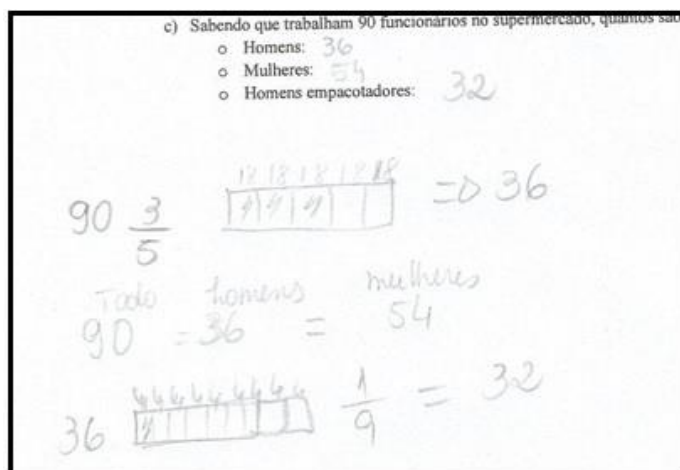 c) Sabendo que trabalham 90 funcionários no supermercado, quantos são
o Homens: 36
o Mulheres: 54
o Homens empacotadores: 32
18 18 18 18 18
90 3/5 => 36
Todo homens mulheres
90 = 36 = 54
4 4 4 4 4 4 4 4 4
36 1/9 = 32